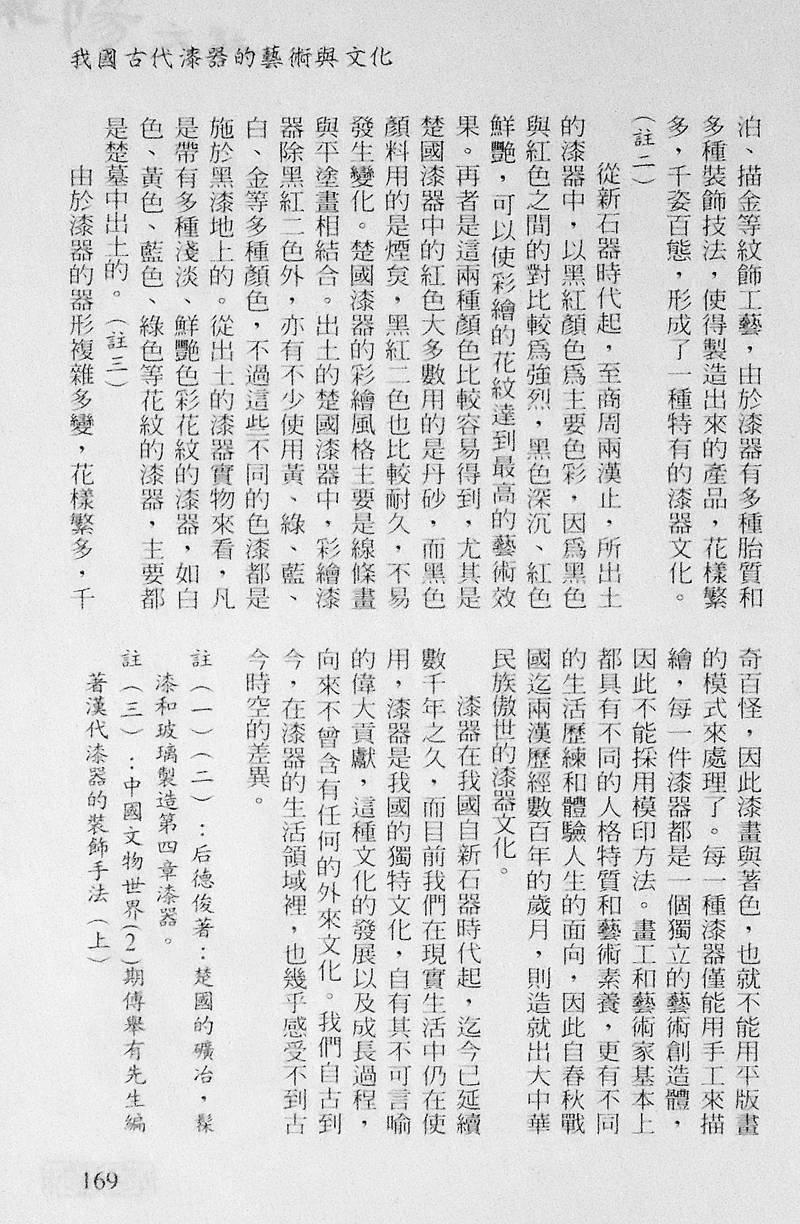 我國古代漆器的藝術與文化
泊、描金等紋飾工藝，由於漆器有多種胎質和
多種裝飾技法，使得製造出來的產品，花樣繁
多，千姿百態，形成了一種特有的漆器文化。
（註二）
從新石器時代起，至商周兩漢止，所出土
的漆器中，以黑紅顏色爲主要色彩，因爲黑色
與紅色之間的對比較爲強烈，黑色深沉、紅色
鮮艷，可以使彩繪的花紋達到最高的藝術效
果。再者是這兩種顏色比較容易得到，尤其是
楚國漆器中的紅色大多數用的是丹砂，而黑色
顏料用的是煙炱，黑紅二色也比較耐久，不易
發生變化。楚國漆器的彩繪風格主要是線條畫
與平塗畫相結合。出土的楚國漆器中，彩繪漆
器除黑紅二色外，亦有不少使用黃、綠、藍、
白、金等多種顏色，不過這些不同的色漆都是
施於黑漆地上的。從出土的漆器實物來看，凡
是帶有多種淺淡、鮮艷色彩花紋的漆器，如白
色、黃色、藍色、綠色等花紋的漆器，主要都
是楚墓中出土的。（註三）
由於漆器的器形複雜多變，花樣繁多，千
奇百怪，因此漆畫與著色，也就不能用平版畫
的模式來處理了。每一種漆器僅能用手工來描
繪，每一件漆器都是一個獨立的藝術創造體，
因此不能採用模印方法。畫工和藝術家基本上
都具有不同的人格特質和藝術素養，更有不同
的生活歷練和體驗人生的面向，因此自春秋戰
國迄兩漢歷經數百年的歲月，則造就出大中華
民族傲世的漆器文化。
漆器在我國自新石器時代起，迄今已延續
數千年之久，而目前我們在現實生活中仍在使
用，漆器是我國的獨特文化，自有其不可言喻
的偉大貢獻，這種文化的發展以及成長過程，
向來不曾含有任何的外來文化。我們自古到
今，在漆器的生活領域裡，也幾乎感受不到古
今時空的差異。
註（一）（二）：后德俊著：楚國的礦冶，髹
漆和玻璃製造第四章漆器。
註（三）：中國文物世界(2)期傅舉有先生編
著漢代漆器的裝飾手法（上）
169